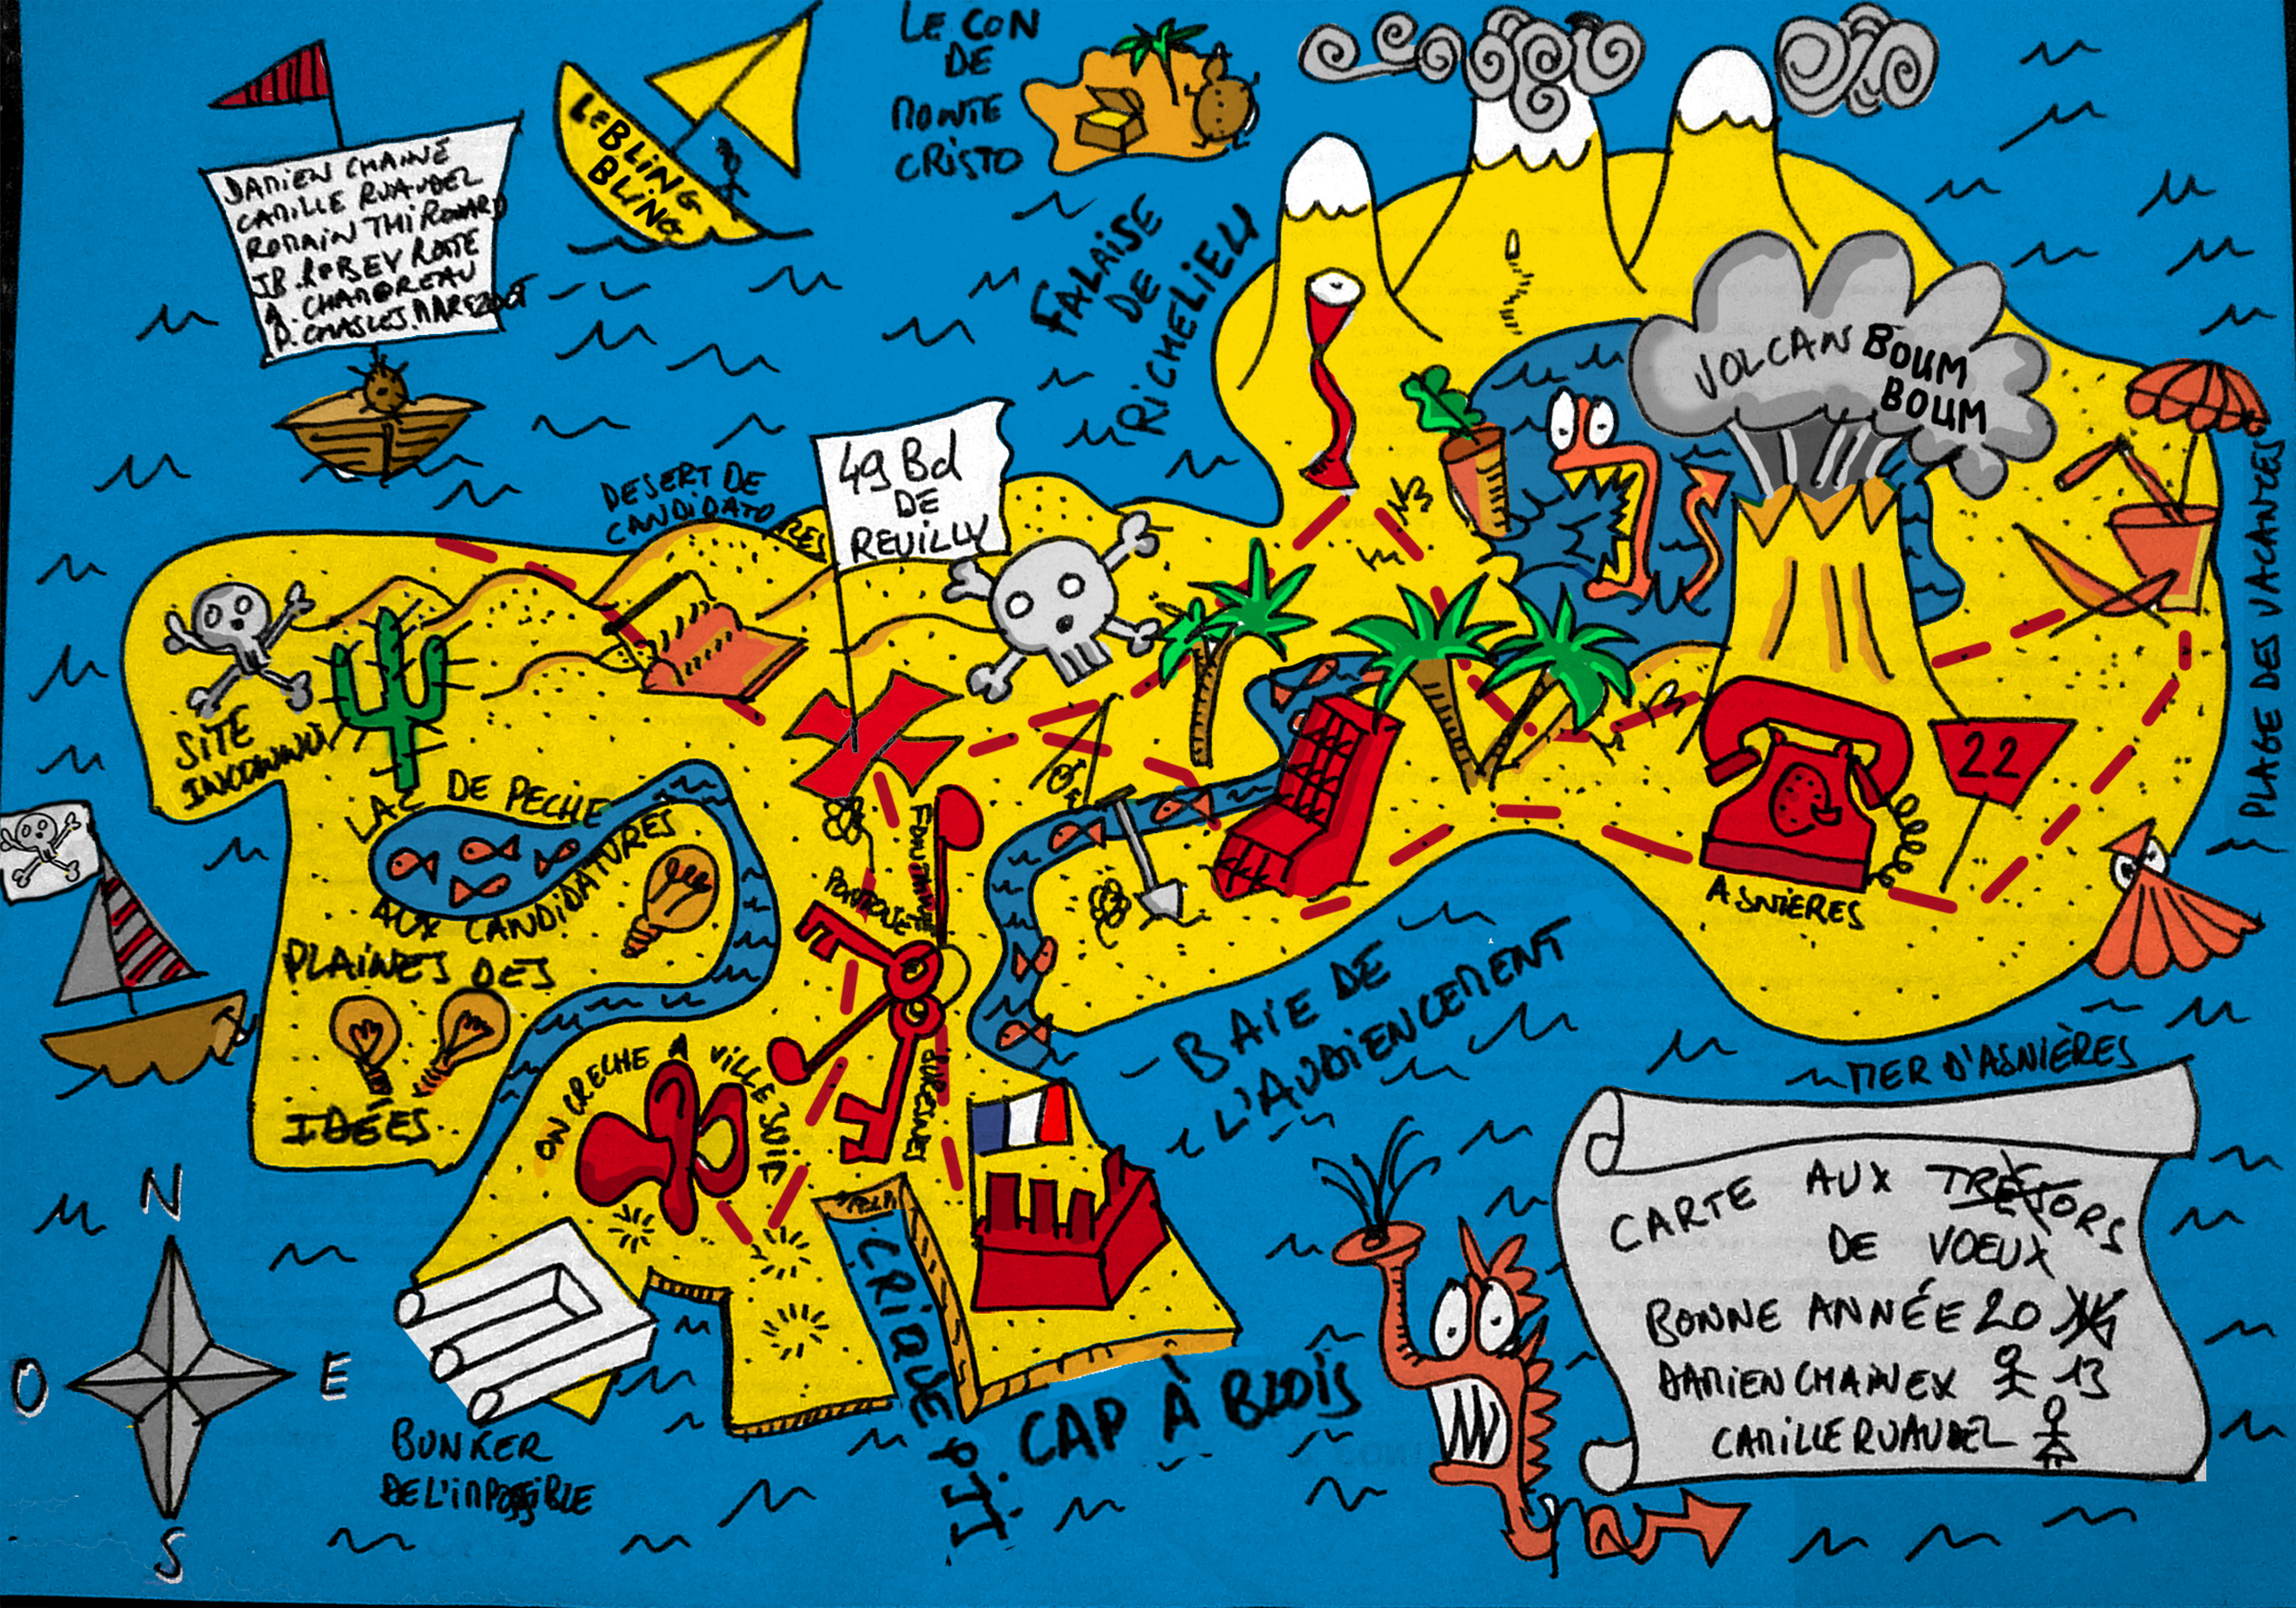 LE CON
DE
MONTE
CRISTO
LE BLING
BLING
DAMIEN CHAINÉ
CAMILLE RUAUDEL
ROMAIN THIROUARD
A. CHAMOREAU
FALAISE
DE
RICHELIEU
VOLCAN BOUM
BOUM
49 Bd
DE
REUILLY
DESERT DE
CANDIDATO
RES
PLAGE DES VACANTES
SITE
INCONNU
LAC DE PECHE
AUX CANDIDATURES
PLAINES DES
IDÉES
22
ASNIERES
PONTOISE
SURESNES
ON CRECHE A VILLE
BAIE DE
L'AUDIENCEMENT
MER D'ASNIÈRES
CRIQUE PJJ
CAP À BLOIS
BUNKER
DE L'IMPOSSIBLE
N
O
E
S
CARTE AUX TRÉSORS
DE VOEUX
BONNE ANNÉE 20
DAMIEN CHAINEX 13
CAMILLE RUAUDEL